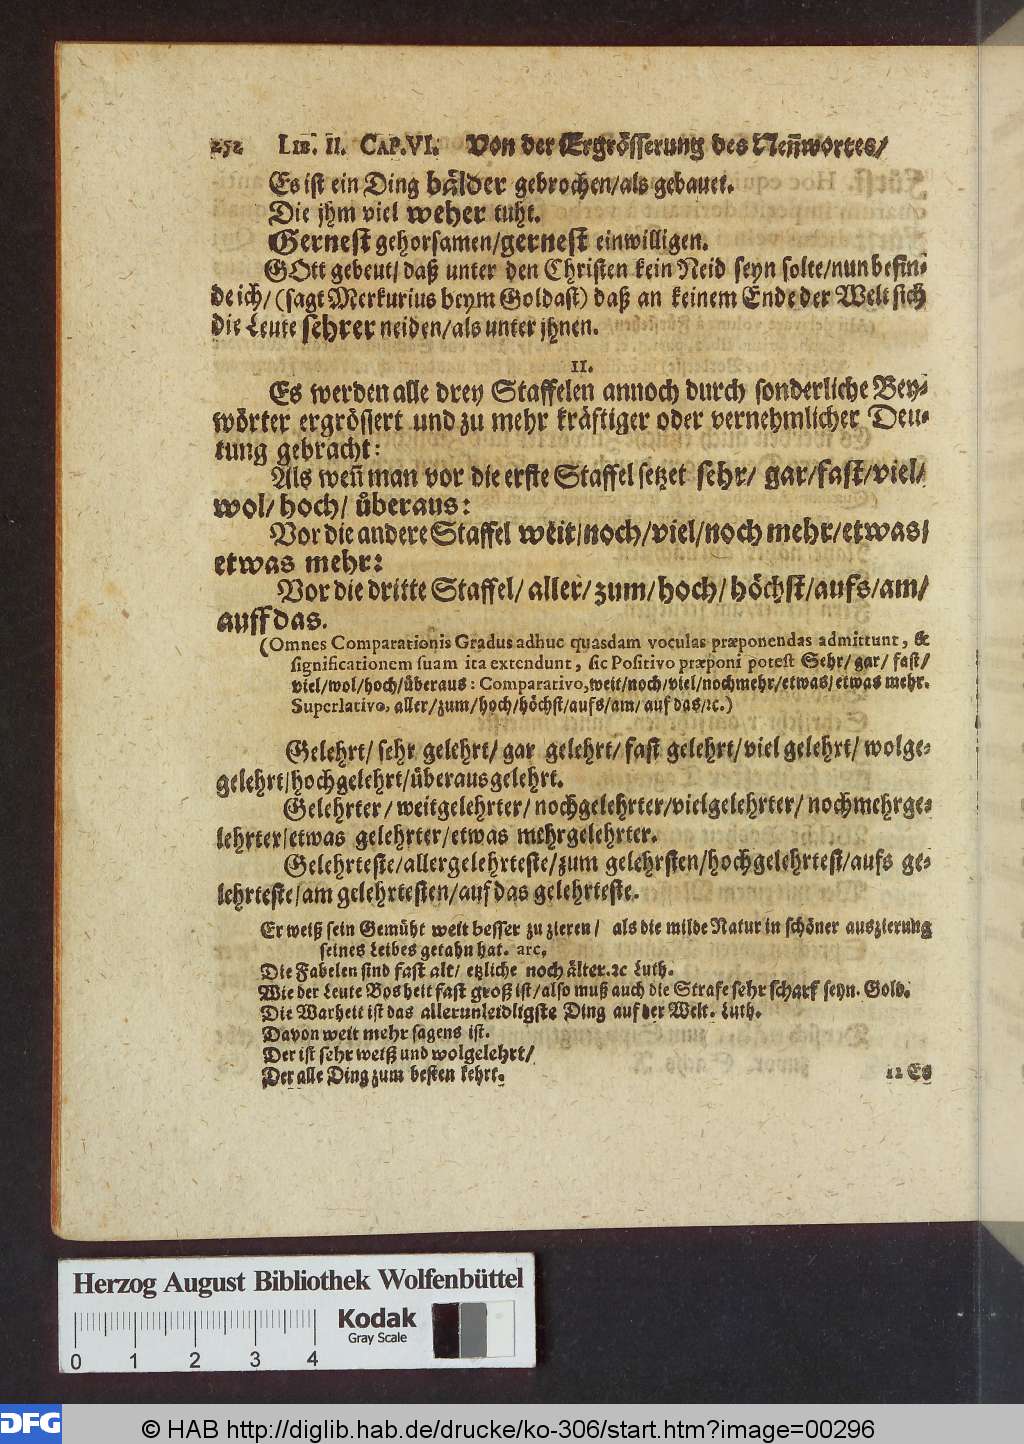 252 LIB. II. CAP. VI. Von der Ergrösserung des Neñwortes/
Es ist ein Ding bålder gebrochen/als gebauet.
Die jhm viel weher tuht.
Gernest gehorsamen/gernest einwilligen.
GOtt gebeut/ daß unter den Christen kein Neid seyn solte/nun befin-
de ich/ (sagt Merkurius beym Goldast) daß an keinem Ende der Welt sich
die Leute sehrer neiden/als unter jhnen.
11.
Es werden alle drey Staffelen annoch durch sonderliche Bey-
wörter ergrössert und zu mehr kräftiger oder vernehmlicher Deu-
tung gebracht:
Als weñ man vor die erste Staffel setzet sehr/ gar/fast/viel/
wol/ hoch/ überaus:
Vor die andere Staffel weit/noch/viel/noch mehr/etwas/
etwas mehr:
Vor die dritte Staffel/ aller/ zum/ hoch/ höchst/aufs/am/
auff das.
(Omnes Comparationis Gradus adhuc quasdam voculas præponendas admittunt, &
significationem suam ita extendunt, sic Positivo præponi potest Sehr/ gar/ fast/
viel/wol/hoch/überaus: Comparativo, weit/noch/viel/nochmehr/etwas/etwas mehr.
Superlativo, aller/zum/hoch/höchst/aufs/am/ auf das/ꝛc.)
Gelehrt/ sehr gelehrt/ gar gelehrt/ fast gelehrt/viel gelehrt/ wolge-
gelehrt/hochgelehrt/überausgelehrt.
Gelehrter/ weitgelehrter/ nochgelehrter/vielgelehrter/ nochmehrge-
lehrter/etwas gelehrter/etwas mehrgelehrter.
Gelehrteste/allergelehrteste/zum gelehrsten/hochgelehrtest/aufs ge-
lehrteste/am gelehrtesten/auf das gelehrteste.
Er weiß sein Gemüht weit besser zu zieren/ als die milde Natur in schöner auszierung
seines Leibes getahn hat. arc.
Die Fabelen sind fast alt/ etzliche noch älter.ꝛc Luth.
Wie der Leute Bosheit fast groß ist/also muß auch die Strafe sehr scharf seyn. Gold.
Die Warheit ist das allerunleidligste Ding auf der Welt. Luth.
Davon weit mehr sagens ist.
Der ist sehr weiß und wolgelehrt/
Der alle Ding zum besten kehrt.
12 Es
Herzog August Bibliothek Wolfenbüttel
Kodak
Gray Scale
0 1 2 3 4
DFG
© HAB http://diglib.hab.de/drucke/ko-306/start.htm?image=00296